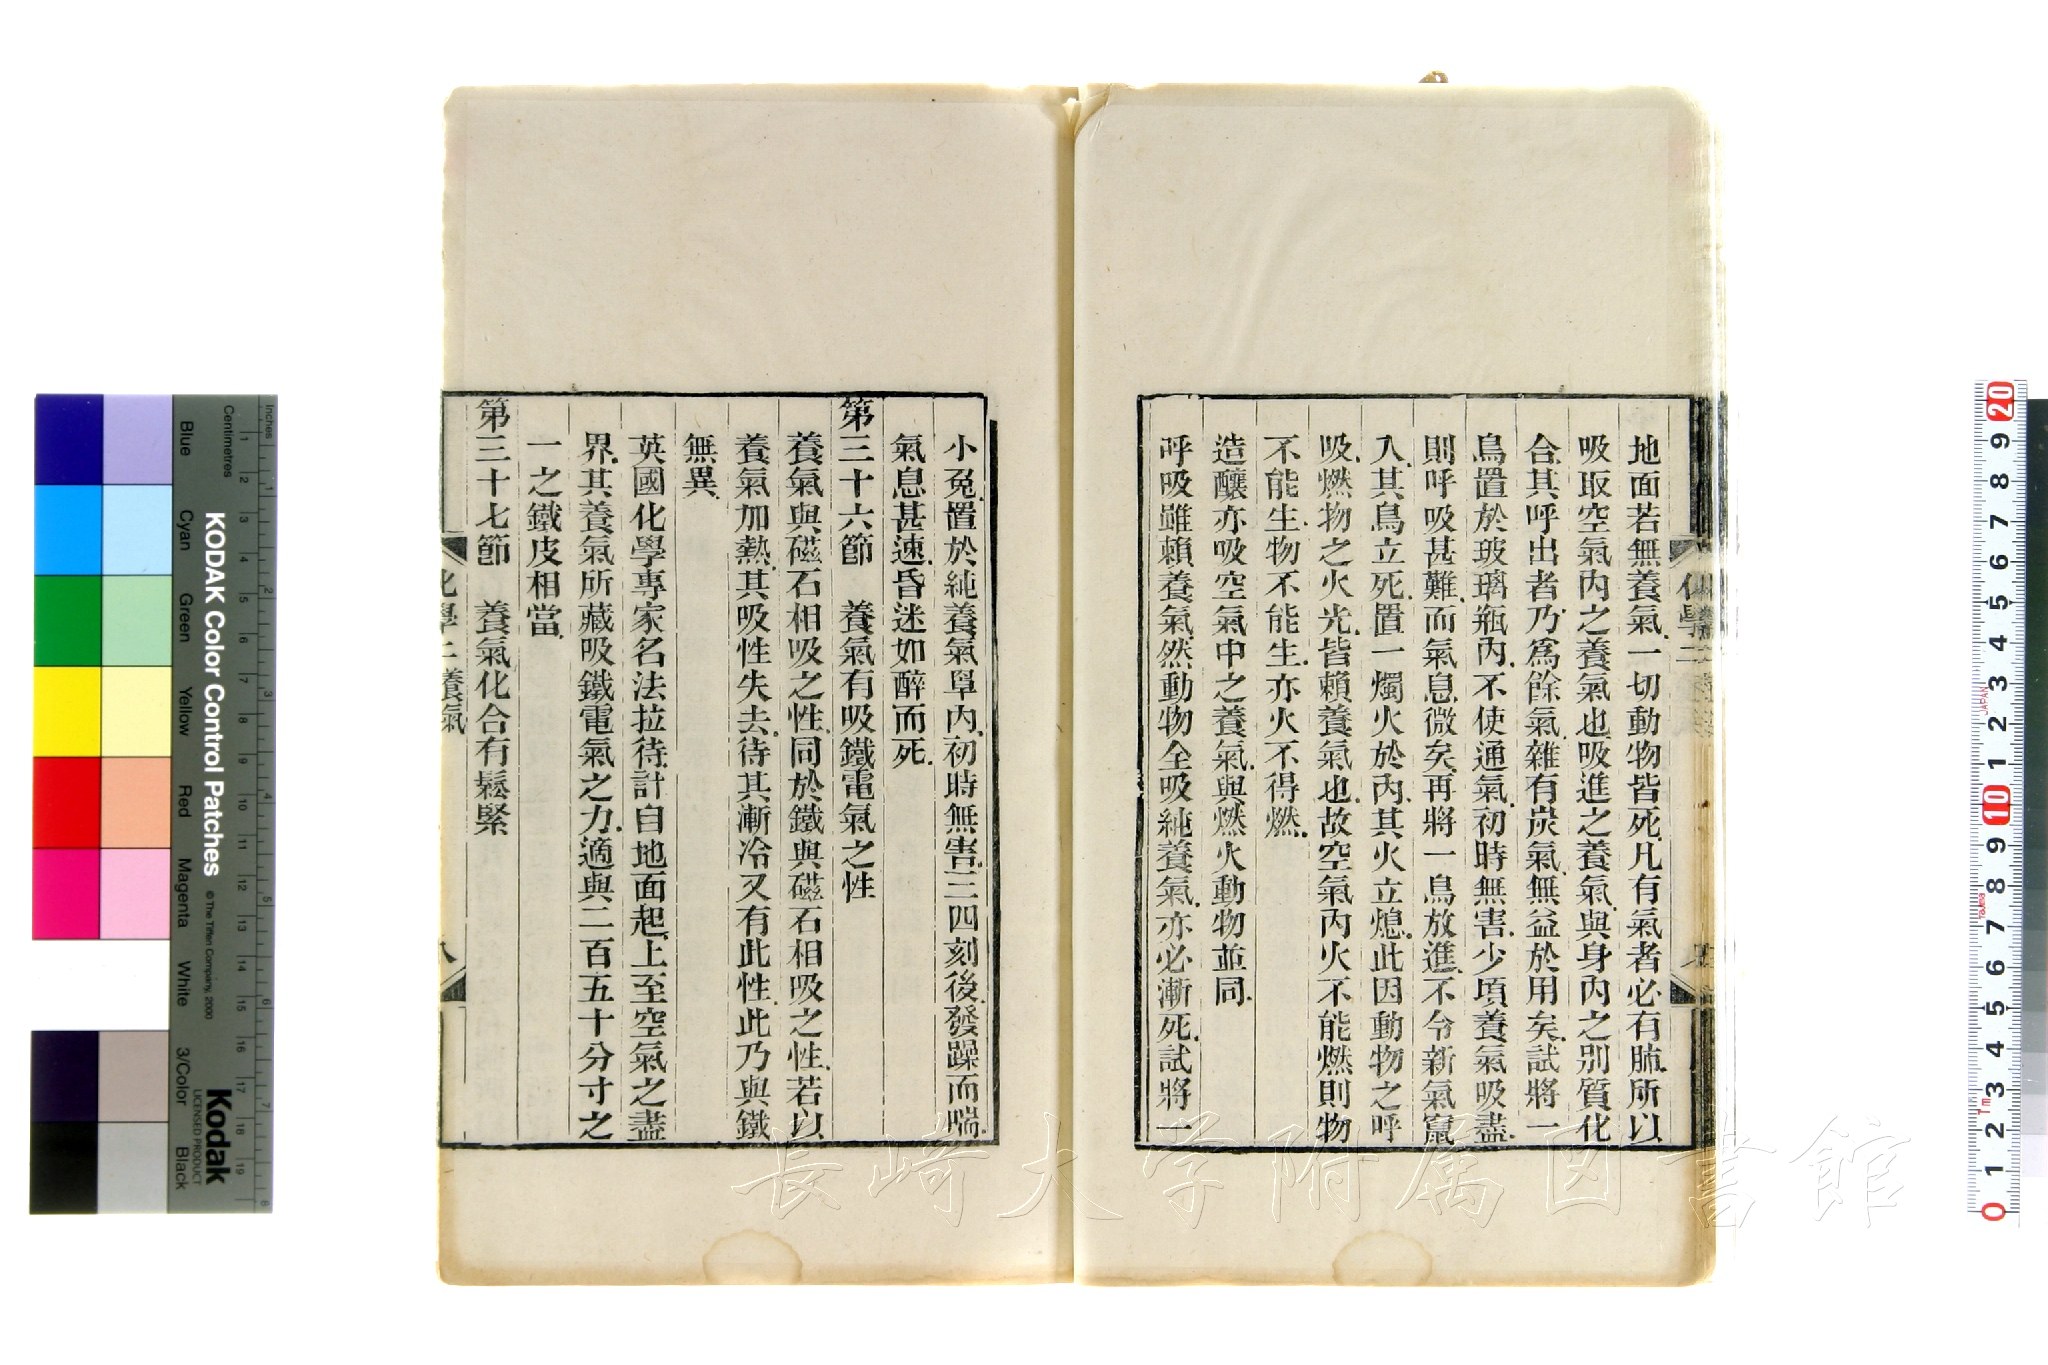 地面若無養氣、一切動物皆死、凡有氣者必有肺、所以
吸取空氣內之養氣也、吸進之養氣、與身內之別質化
合、其呼出者、乃爲餘氣、雜有炭氣、無益於用矣、試將一
鳥置於玻璃瓶內、不使通氣、初時無害、少頃養氣吸盡、
則呼吸甚難、而氣息微矣、再將一鳥放進、不令新氣竄
入、其鳥立死、置一燭火於內、其火立熄、此因動物之呼
吸、燃物之火光、皆賴養氣也、故空氣內火不能燃、則物
不能生、物不能生、亦火不得燃、
造釀亦吸空氣中之養氣、與燃火動物並同、
呼吸雖賴養氣、然動物全吸純養氣、亦必漸死、試將一
化學二
小兔、置於純養氣罩內、初時無害、三四刻後、發躁而喘、
氣息甚速、昏迷如醉而死、
第三十六節　養氣有吸鐵電氣之性
養氣與磁石相吸之性、同於鐵與磁石相吸之性、若以
養氣加熱、其吸性失去、待其漸冷又有此性、此乃與鐵
無異、
英國化學專家名法拉待、計自地面起、上至空氣之盡
界、其養氣所藏吸鐵電氣之力、適與二百五十分寸之
一之鐵皮相當、
第三十七節　養氣化合有鬆緊
化學二 養氣
八
KODAK Color Control Patches
© The Tiffen Company, 2000
Kodak
LICENSED PRODUCT
Inches
Centimetres
Blue
Cyan
Green
Yellow
Red
Magenta
White
3/Color
Black
長崎大学附属図書館
JAPAN